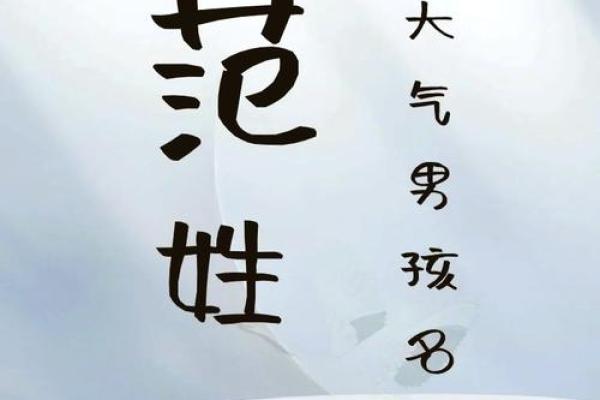 范姓
大气男孩名